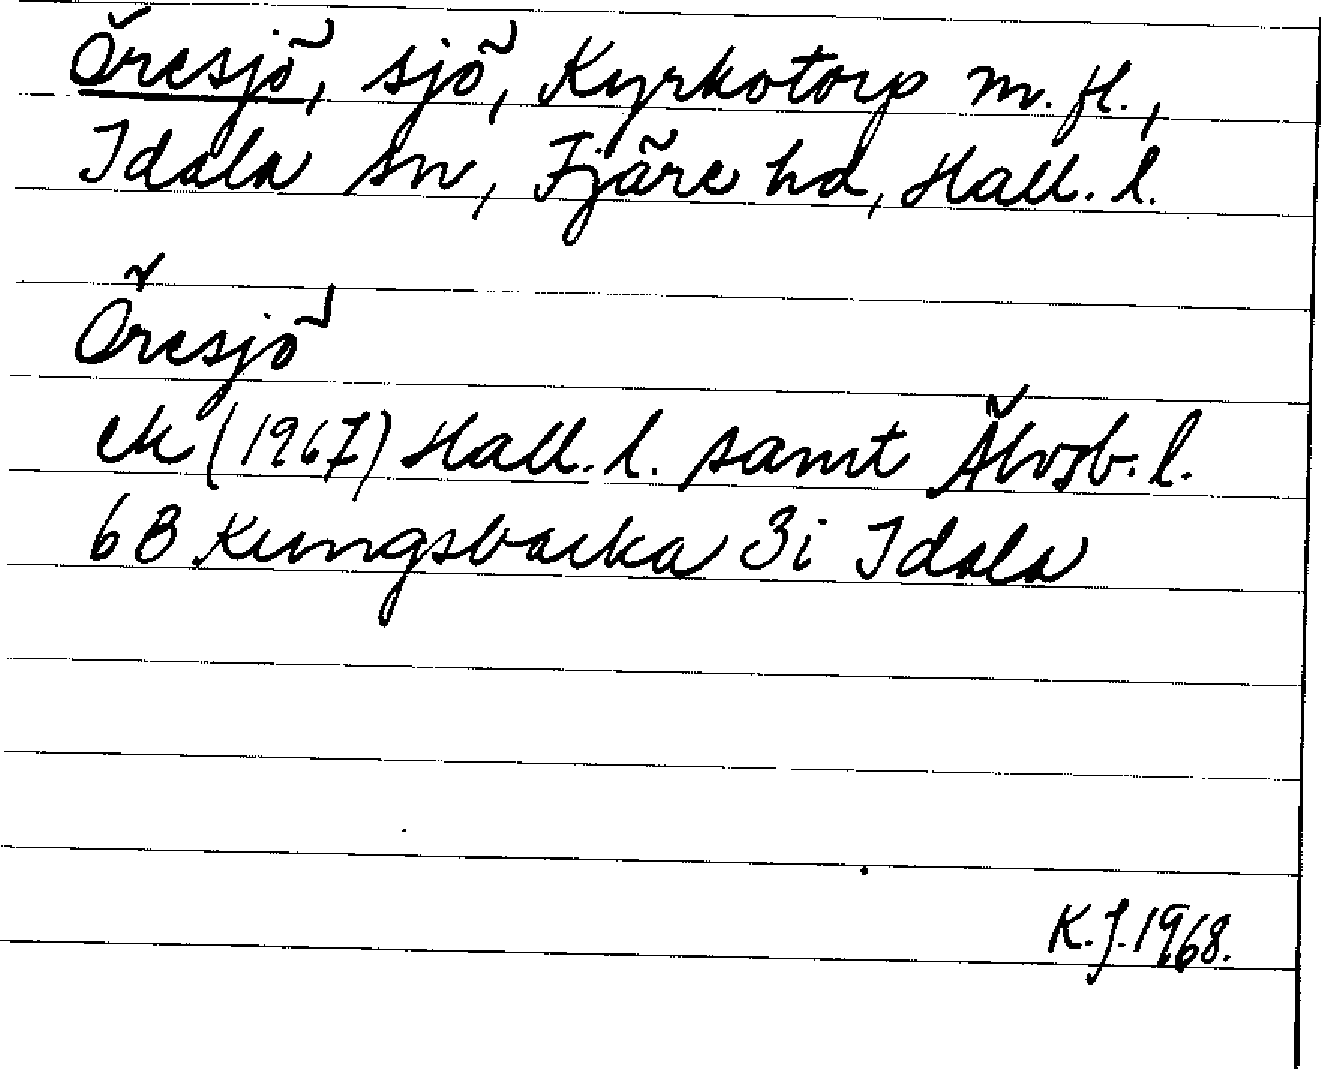 Öresjö, sjö, Kyrkotorp m. fl.,
Idala sn, Fjäre hd, Hall. l.
Öresjö
ek (1967) Hall. l. samt Älvsb. l.
6B Kungsbacka 3i Idala
K.J. 1968.